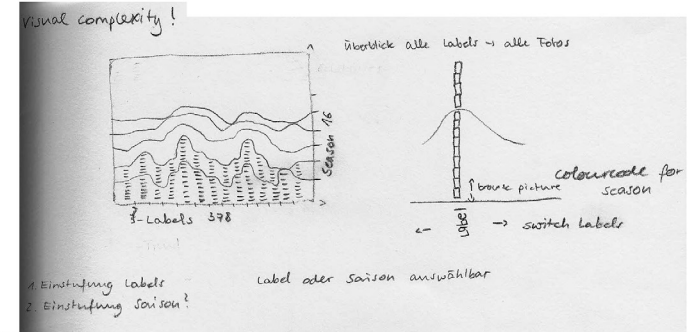 visual complexity !
überblick alle Labels → alle Fotos
season 16
Labels 378
browse picture
colourcode for
season
Label
← → switch Labels
1. Einstufung Labels
2. Einstufung Saison?
Label oder Saison auswählbar